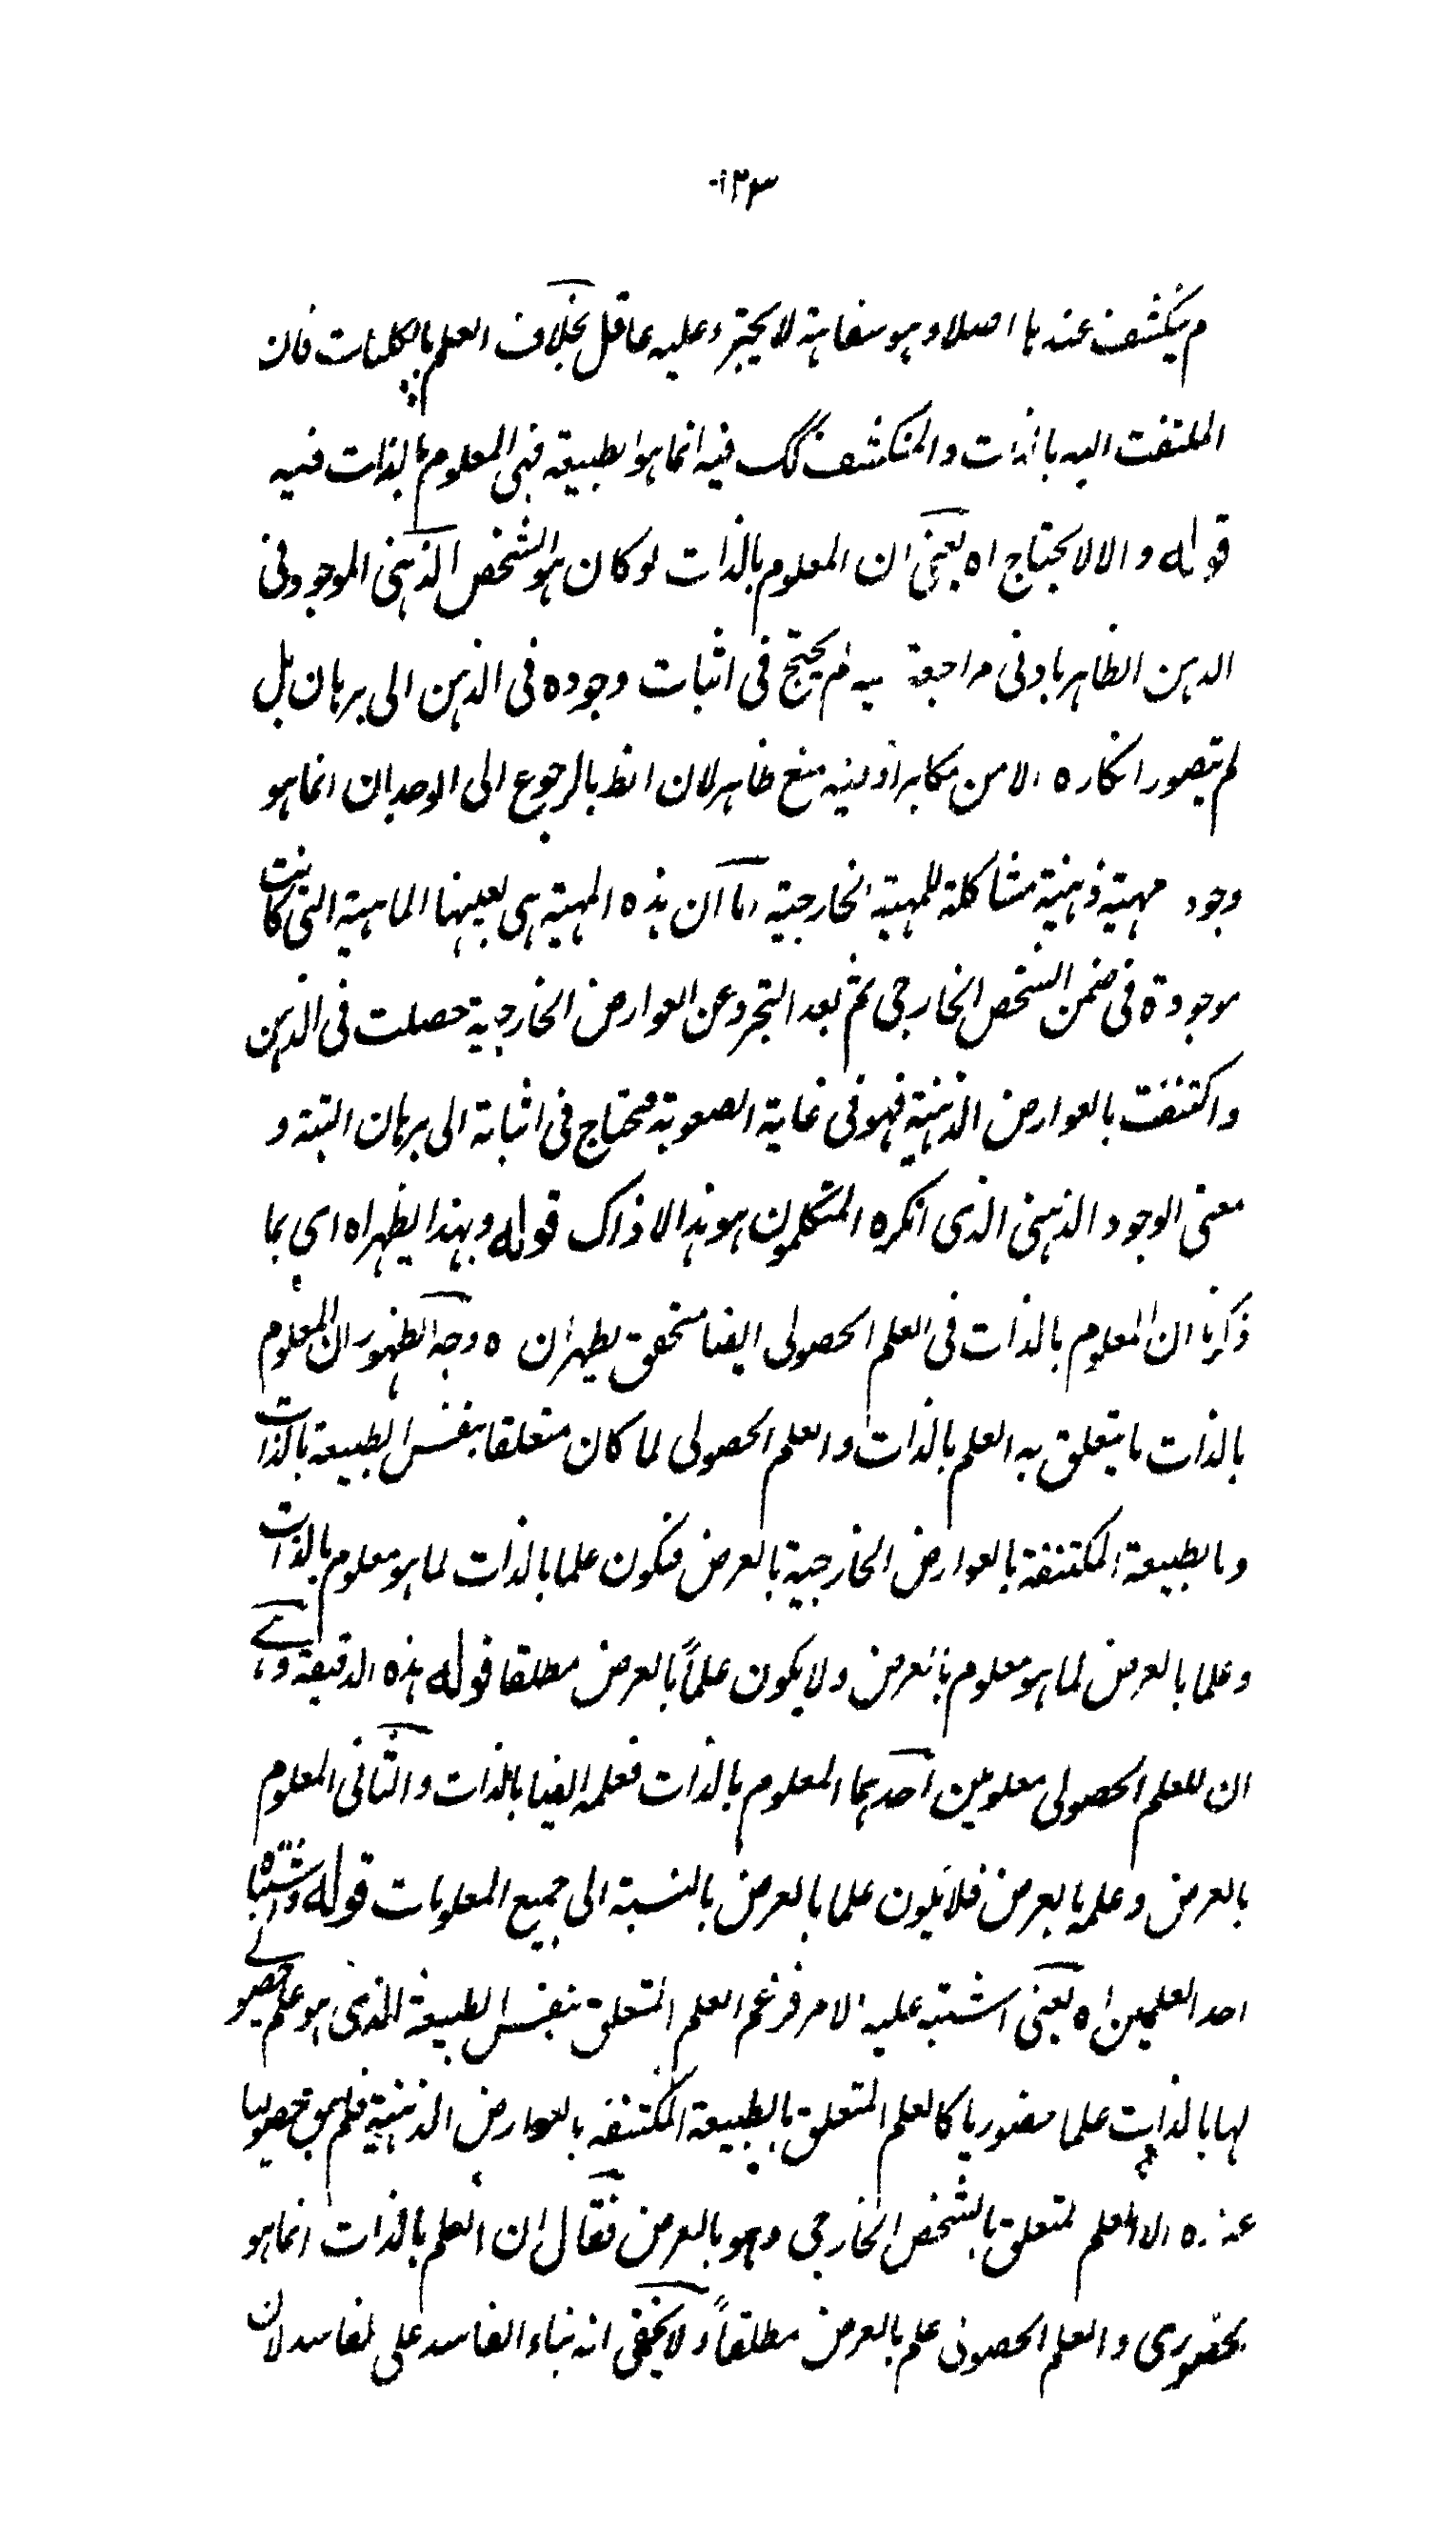 ١٢٣
م ينكشف عندها اصلا وهو سفاهة لا يجترء عليه عاقل بخلاف العلم بالكليات فان
الملتفت اليه بالذات والمنكشف كك فيه انما هو الطبيعة فهي المعلوم بالذات فيه
قوله والا لا يحتاج اه يعني ان المعلوم بالذات لو كان هو الشخص الذهني الموجود في
الذهن الظاهر بادنى مراجعة يه لم يحتج في اثبات وجوده في الذهن الى برهان بل
لم يتصور انكاره الا من مكابر او فيه منع ظاهر لان الظ بالرجوع الى الوجدان انما هو
وجود مهية ذهنية مشاكلة للمهية الخارجية اما ان هذه المهية هي بعينها الماهية التي كانت
موجودة في ضمن الشخص الخارجي ثم بعد التجرد عن العوارض الخارجية حصلت في الذهن
واكتنفت بالعوارض الذهنية فهو في غاية الصعوبة محتاج في اثباته الى برهان البتة و
معنى الوجود الذهني الذى انكره المتكلمون هو هذا لا ذاك قوله وبهذا يظهر اه اي بما
ذكرنا ان المعلوم بالذات في العلم الحصولى ايضا متحقق يظهر ان ه وجه الظهور ان المعلوم
بالذات ما يتعلق به العلم بالذات والعلم الحصولى لما كان متعلقا بنفس الطبيعة بالذات
وبالطبيعة المكتنفة بالعوارض الخارجية بالعرض فيكون علما بالذات لما هو معلوم بالذات
وعلما بالعرض لما هو معلوم بالعرض ولا يكون علماً بالعرض مطلقا قوله هذه الدقيقة وهي
ان للعلم الحصولى معلومين احدهما المعلوم بالذات فعلمه ايضا بالذات والثاني المعلوم
بالعرض وعلمه بالعرض فلا يكون علما بالعرض بالنسبة الى جميع المعلومات قوله واشتباه
احد العلمين اه يعني اشتبه عليه الامر فزعم العلم المتعلق بنفس الطبيعة الذي هو علم حصولي
لها بالذات علما حضوريا كالعلم المتعلق بالطبيعة المكتنفة بالعوارض الذهنية فلم يبق حصوليا
عنده الا العلم المتعلق بالشخص الخارجي وهو بالعرض فقال ان العلم بالذات انما هو
بحضورى والعلم الحصولى علم بالعرض مطلقاً ولا يخفى انه بناء الفاسد على الفاسد لان